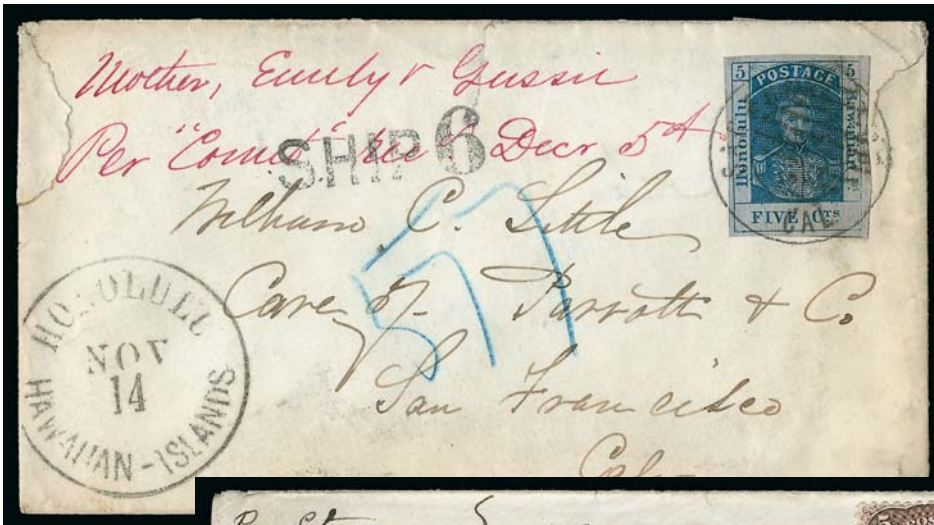 Mother, Emily & Gussie
Per "Comet" Rec'd Decr 5th
SHIP 6
5 POSTAGE 5
Honolulu
Hawaiian Is.
FIVE Cts
CAL
William C. Little
57
Care of Parrott & Co
San Francisco
Cal
HONOLULU
NOV
14
HAWAIIAN-ISLANDS